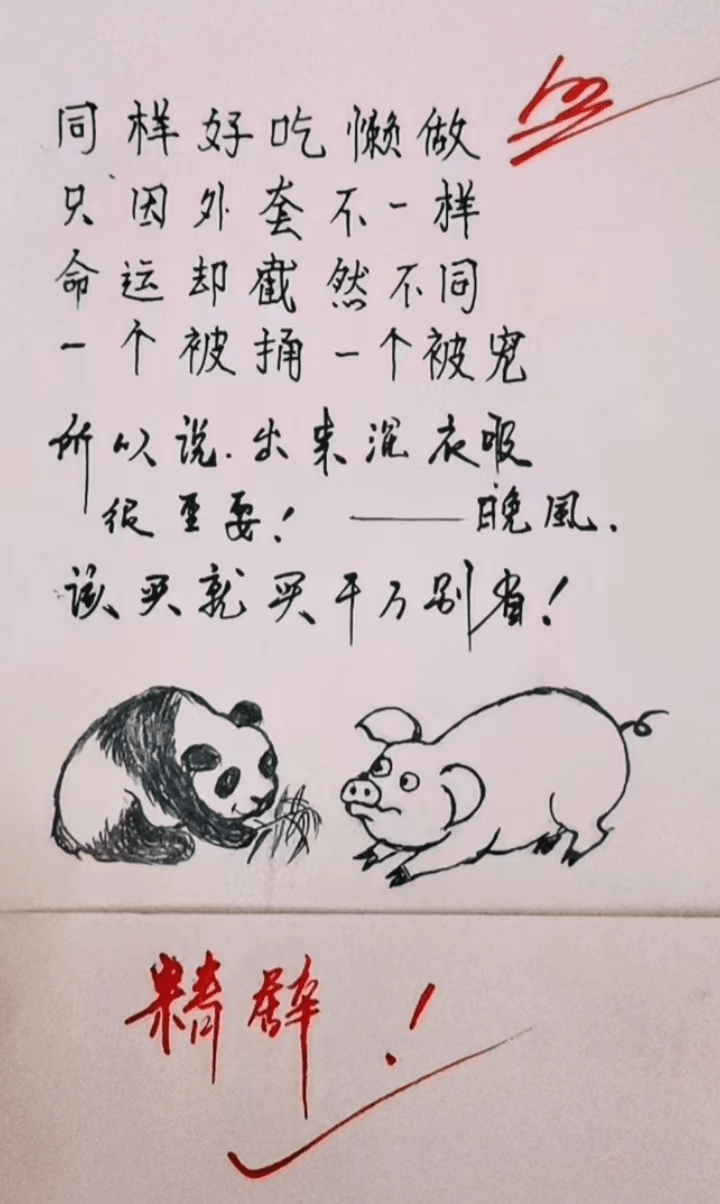 100
同样好吃懒做
只因外套不一样
命运却截然不同
一个被捅一个被宠
所以说.出来混衣服
很重要! ——晚風.
该买就买千万别省!
精辟!